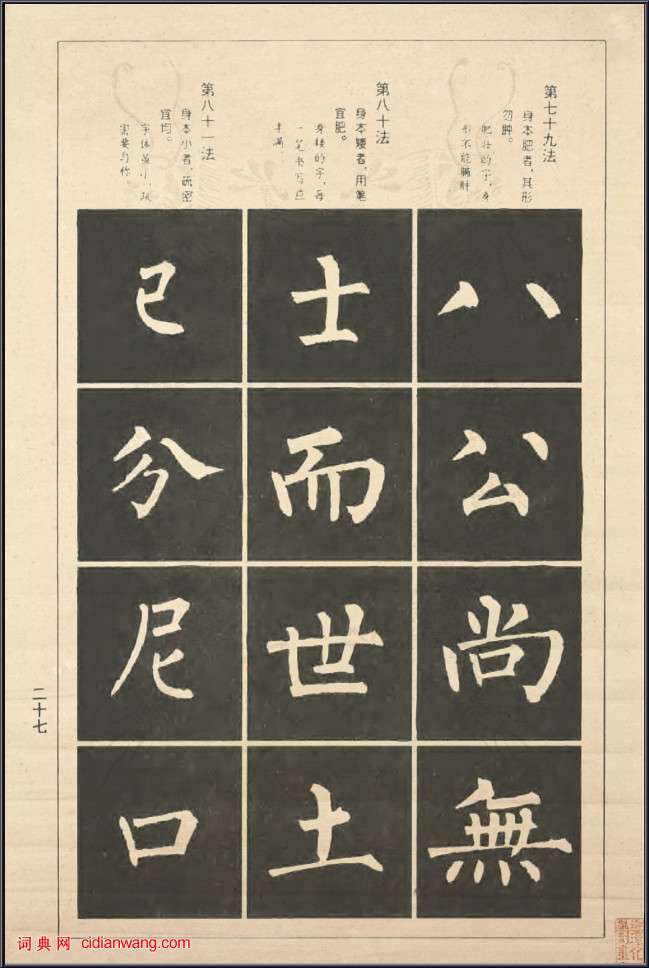 第七十九法
身本肥者，其形
勿肿。
肥壮的字，身
形不能臃肿
八
公
尚
無
第八十法
身本矮者，用笔
宜肥。
身矮的字，每
一笔书写应
丰满
士
而
世
土
第八十一法
身本小者，疏密
宜均。
字体虽小，疏
密要匀称
已
分
尼
口
二十七
词典网 cidianwang.com